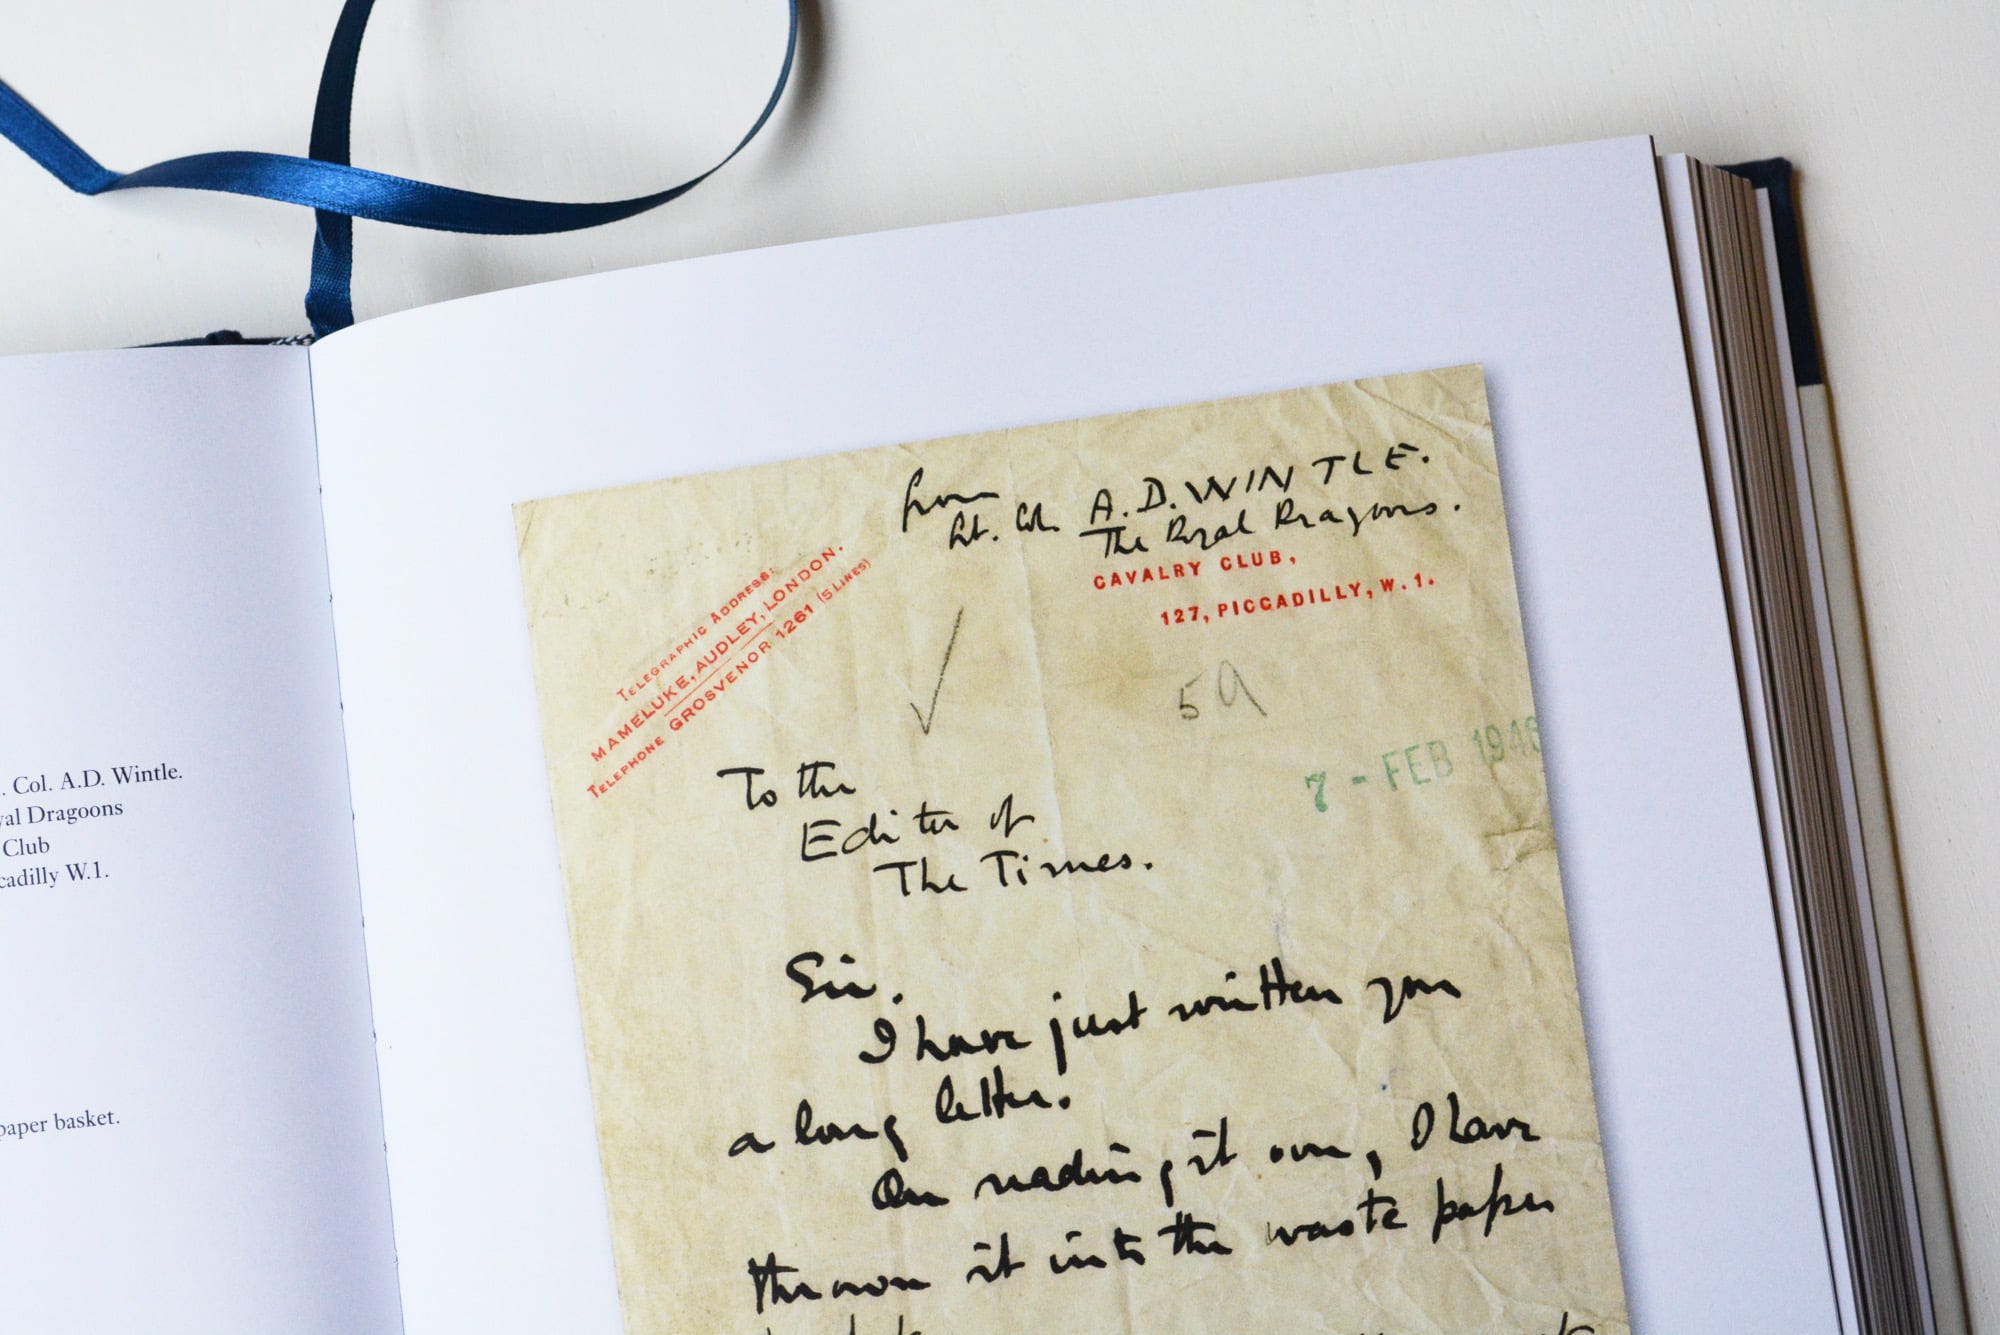 . Col. A.D. Wintle.
yal Dragoons
Club
cadilly W.1.
paper basket.
from
Lt. Col. A.D. WINTLE.
The Royal Dragoons.
CAVALRY CLUB,
127, PICCADILLY, W.1.
TELEGRAPHIC ADDRESS:
MAMELUKE, AUDLEY, LONDON.
TELEPHONE GROSVENOR 1261 (5 LINES)
59
7 - FEB 1946
To the
Editor of
The Times.
Sir.
I have just written you
a long letter.
On reading it over, I have
thrown it into the waste paper